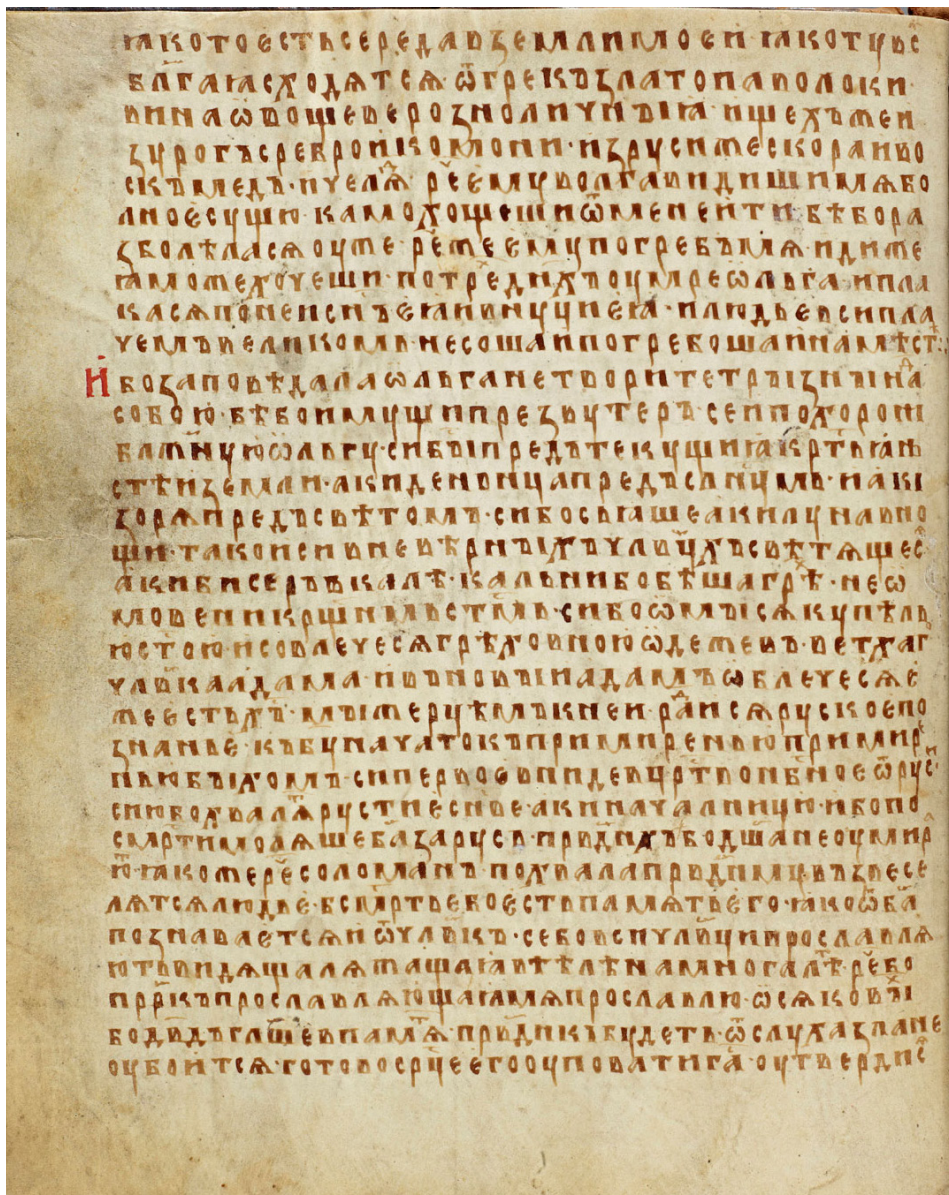 ꙗко то єсть середа в земли моєи ꙗко ту всѧ҇
бл҃гаꙗ сходѧтсѧ · ѿ грекъ злато паволоки ·
вина ѡвощеве розноличныꙗ · и щехъ же и
з урогъ сребро и комони · из руси же скора и во
скъ медъ · и челѧⷣ · реⷱ ему волга видиши мѧ бо
лное сущю камо хощеши ѿ мене ити · бѣ бо ра
зболѣласѧ оуже · реⷱ же ему погребъ мѧ иди же
ꙗможе хочеши · по треⷯ дн҃хъ оумре ѡльга · и пла
касѧ по неи сн҃ъ еꙗ и внуци еꙗ · и людье вси пла
чемь великомь · несоша и погребоша и на мѣстѣ ·
И бо заповѣдала ѡльга не творити трызны наⷣ
собою · бѣ бо имущи презвутеръ · сеи похорони
блж҃ную ѡльгу · си бы предътекущиꙗ крⷭ҇тьꙗнь
стѣи земли · аки деньница предъ слн҃цмь · и аки
зорѧ предъ свѣтомъ · си бо сьꙗше аки луна в но
щи · тако и си в невѣрныхъ чл҃вц҃хъ свѣтѧщесѧ҇
аки бисеръ в калѣ · кальни бо бѣша грѣⷯ · не ѡ
мовени кр҃щнмь ст҃мь · си бо ѡмысѧ купѣлью
ю ст҃ою · и совлечесѧ грѣховною ѡдежею · в ветхаг
чл҃вка адама · и въ новыи адамъ ѡблечесѧ е
же есть хъ҃ · мы же рцѣмъ к неи · раⷣисѧ руское по
знанье · къ б҃у начатокъ примиренью примире
нью быхомъ · си первое вниде в црⷭ҇тво нбⷭ҇ное ѿ руси ·
сию бо хвалѧⷮ рустие сн҃ве · аки началницю · ибо по
смр҃ти молѧше б҃а за русь · првⷣныхъ бо дш҃а не оумир
аюⷮ ꙗкоже реⷱ соломанъ · похвала првⷣному възвесе
лѧтсѧ людье · бесмр҃тье бо есть памѧть его · ꙗко ѿ б҃а
познаваетсѧ и ѿ чл҃вкъ · се бо вси чл҃вци прославлѧ
ють видѧща лежащаꙗ в тѣлѣ на многа лѣⷮ · реⷱ бо
прⷪ҇ркъ прославлѧющаꙗ мѧ прославлю · ѡ сѧковыⷯ
бо дв҃дъ гл҃ше в памѧⷮ првⷣникъ будеть · ѿ слуха зла не
оубоитсѧ · готово ср҃це его оуповати на г҃а · оутвердисѧ҇